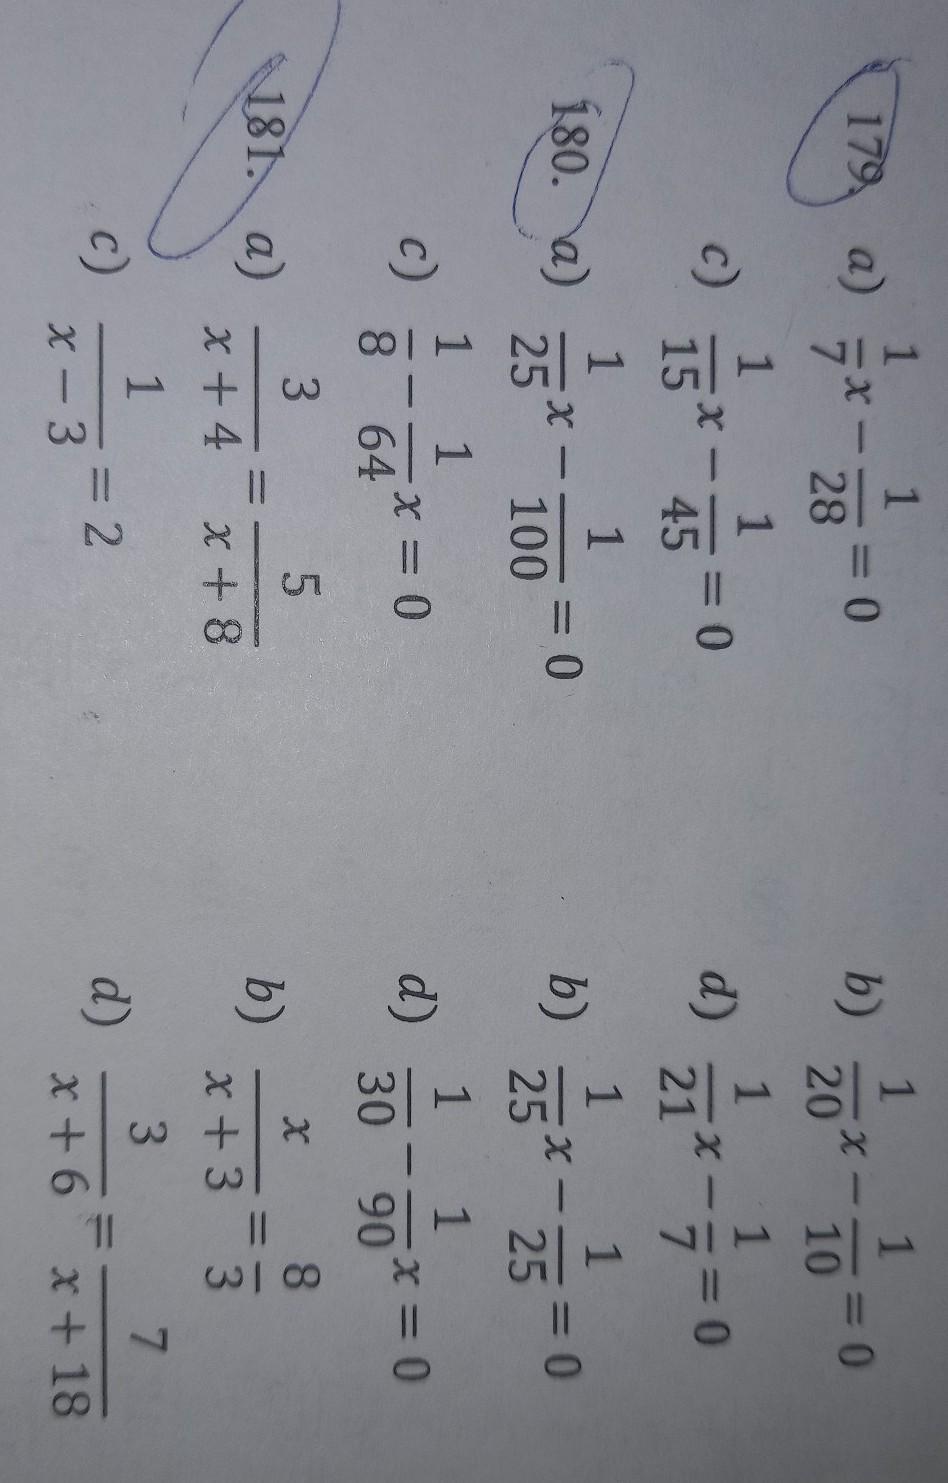 179. a) 1/7 x − 1/28 = 0 b) 1/20 x − 1/10 = 0
c) 1/15 x − 1/45 = 0 d) 1/21 x − 1/7 = 0
180. a) 1/25 x − 1/100 = 0 b) 1/25 x − 1/25 = 0
c) 1/8 − 1/64 x = 0 d) 1/30 − 1/90 x = 0
181. a) 3/(x + 4) = 5/(x + 8) b) x/(x + 3) = 8/3
c) 1/(x − 3) = 2 d) 3/(x + 6) = 7/(x + 18)